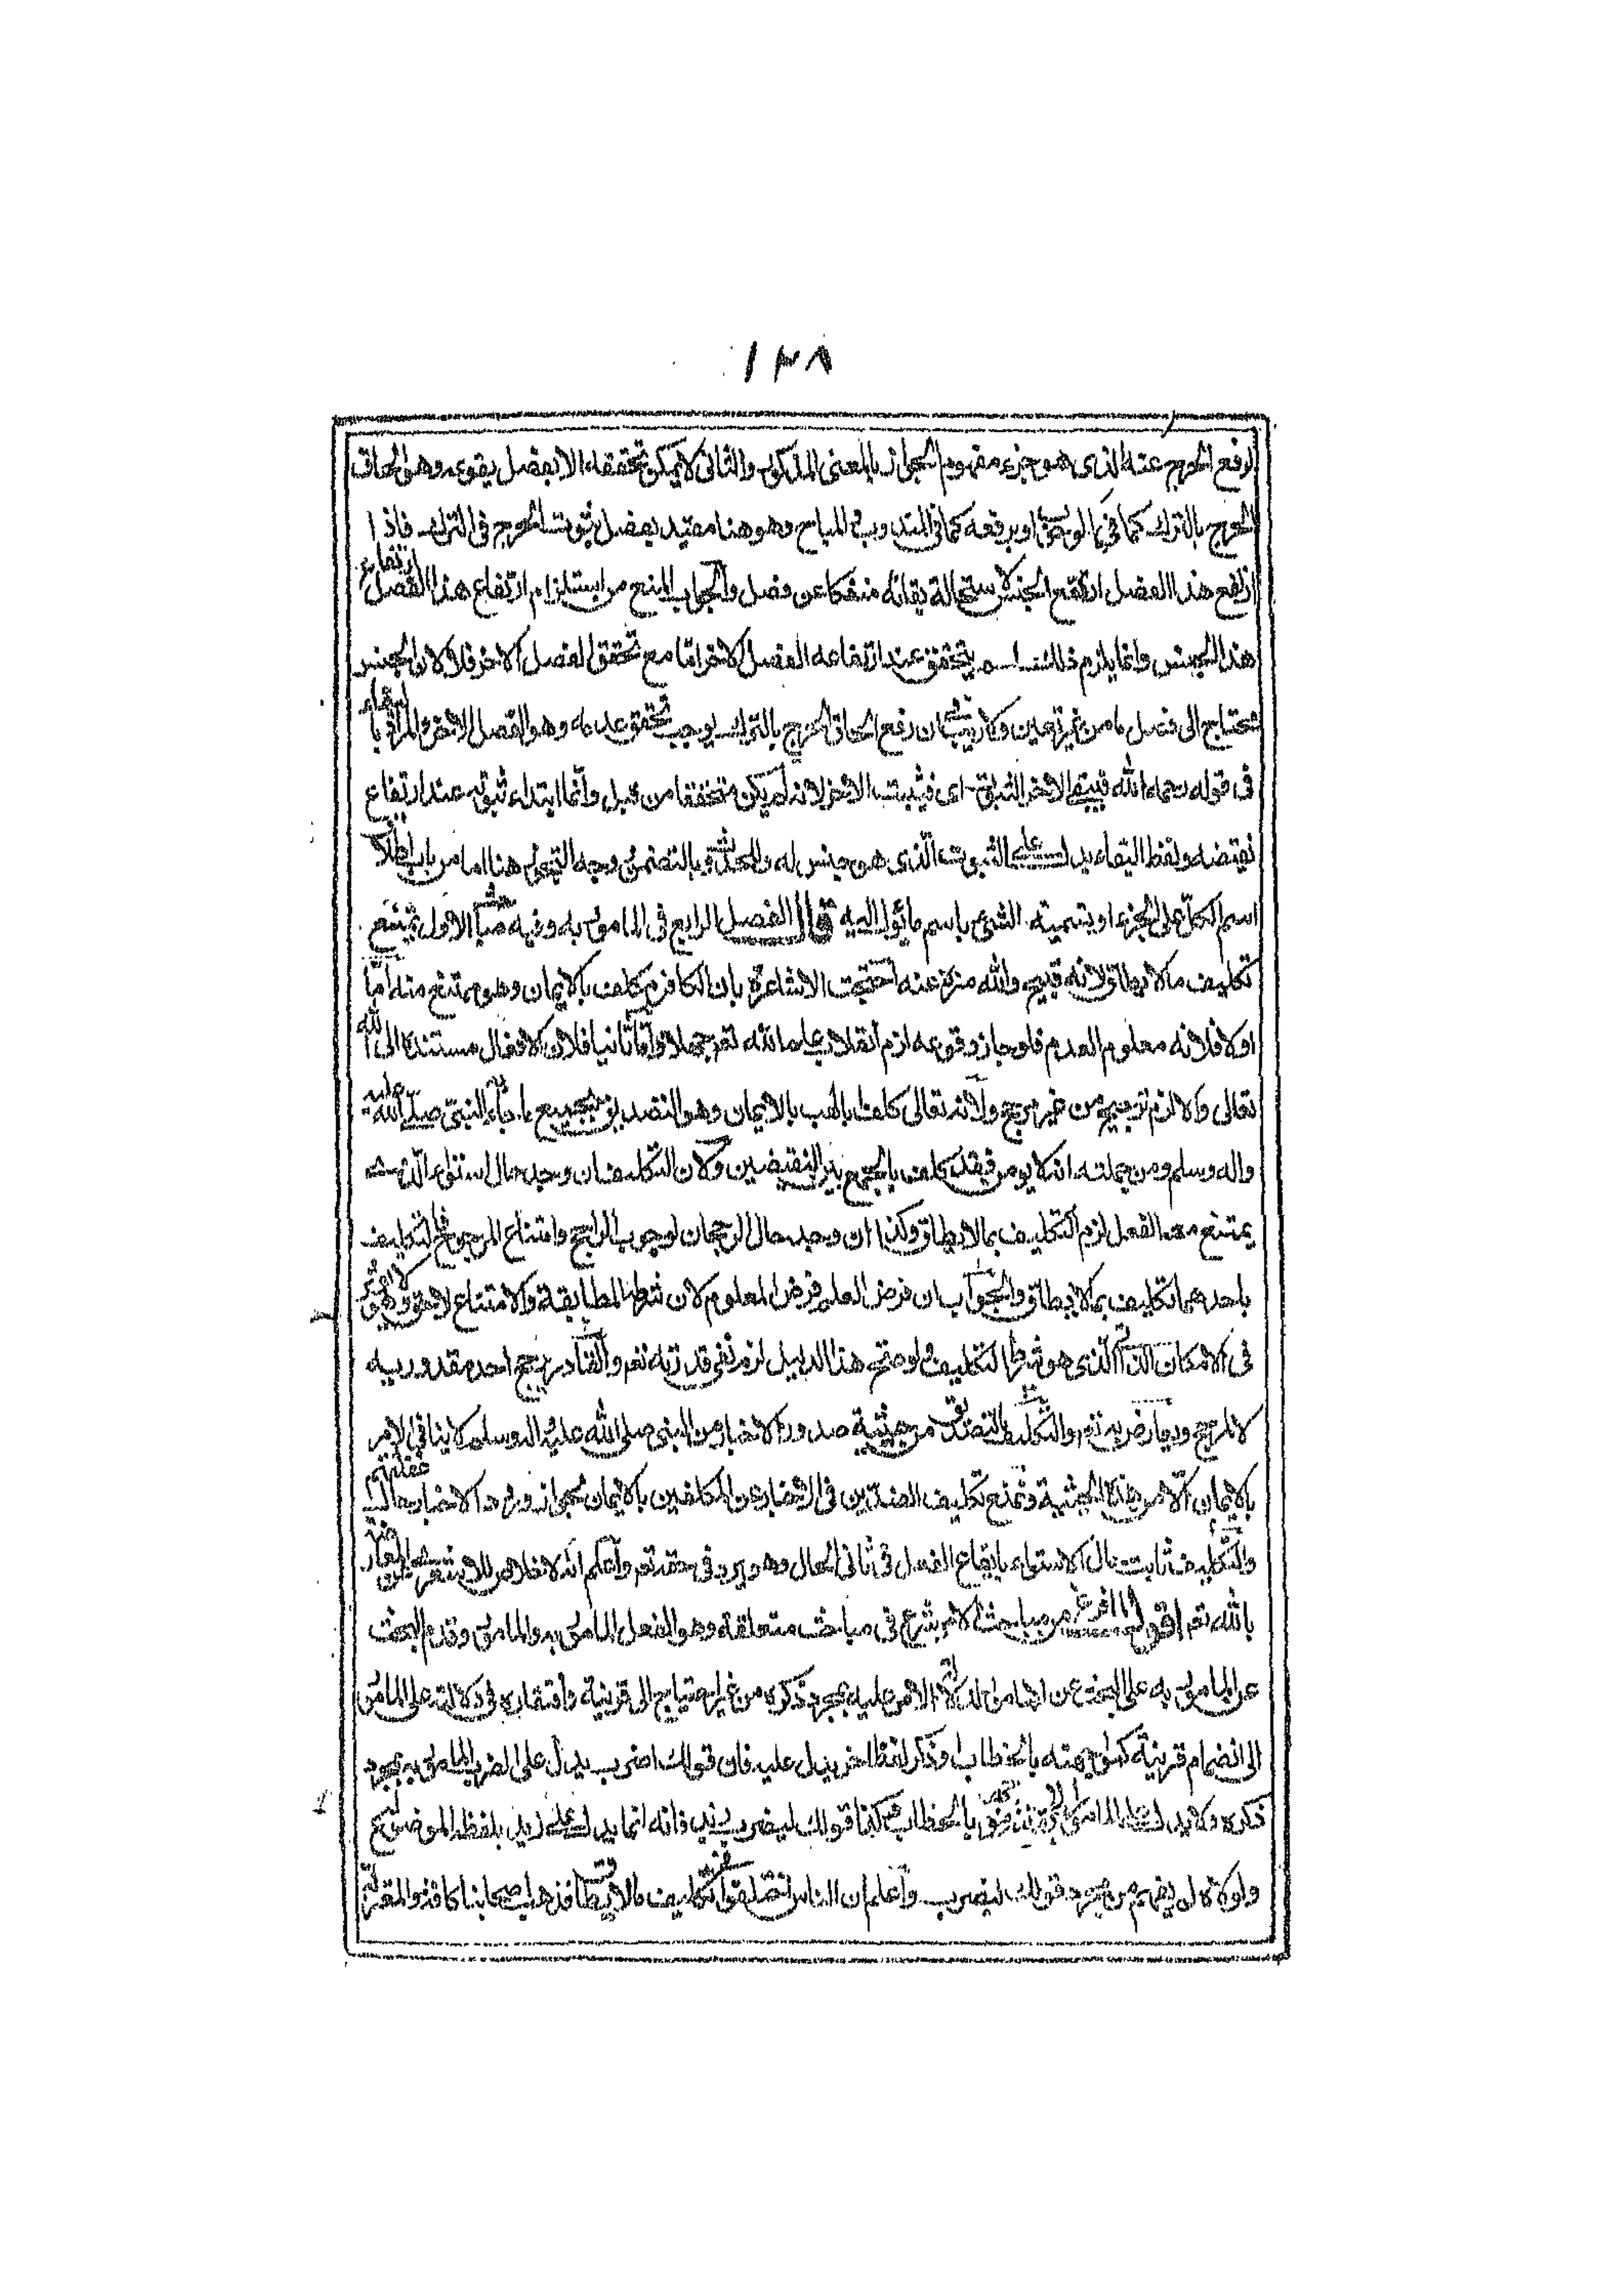 ١٣٨
لرفع الحرج عنه الذى هو جزء مفهوم الجواز بالمعنى المذكور والثانى لا يمكن تحققه الا بفصل يقومه وهو الحاق
الحرج بالترك كما فى الوجوب او برفعه كما فى المندوب والمباح وهو هنا مقيد بفصل ثبوت الحرج فى الترك فاذا
ارتفع هذا الفصل ارتفع الجنس لاستحالة بقائه منفكا عن فصل والجواب المنع من استلزام ارتفاع هذا الفصل ارتفاع
هذا الجنس وانما يلزم ذلك لو لم يتحقق عند ارتفاعه الفصل الاخر اما مع تحقق الفصل الاخر فلا لان الجنس
يحتاج الى فصل ما من غير تعيين ولا ريب ان رفع الحاق الحرج بالترك يوجب تحقق عدمه وهو الفصل الاخر والمراد بالبقاء
فى قوله رحمه الله فيبقى الاخر الثبوت اى فيثبت الاخر لانه لم يكن متحققا من قبل وانما ابتداء ثبوته عند ارتفاع
نقيضه ولفظ البقاء يدل على الثبوت الذى هو جنس له والحدوث بالتضمن ووجه التجوز هنا اما من باب اطلاق
اسم الكل على الجزء او تسمية الشئ باسم ما يؤل اليه قال الفصل الرابع فى المامور به وفيه مباحث الاول يمتنع
تكليف ما لا يطاق لانه قبيح والله منزه عنه احتجت الاشاعرة بان الكافر مكلف بالايمان وهو ممتنع منه اما
اولا فلانه معلوم العدم فلو جاز وقوعه لزم انقلاب علم الله تعم جهلا واما ثانيا فلان الافعال مستندة الى الله
تعالى والا لزم ترجيح من غير مرجح ولانه تعالى كلف ابا لهب بالايمان وهو التصديق بجميع ما جاء به النبى صلى الله عليه
واله وسلم ومن جملته انه لا يومن فقد كلف بالجمع بين النقيضين ولان التكليف ان وجد حال استواء الذى
يمتنع معه الفعل لزم التكليف بما لا يطاق وكذا ان وجد حال الرجحان لوجوب الراجح وامتناع المرجوح فالتكليف
باحدهما تكليف بما لا يطاق والجواب ان فرض العلم فرض المعلوم لان شرطه المطابقة والامتناع لاحق وهو لا يوثر
فى الامكان الذاتى الذى هو شرط التكليف ولو صح هذا الدليل لزم نفى قدرته تعم والقادر يرجح احد مقدوريه
لا لمرجح ويعارض به تعم والتكليف بالتصديق من حيثية صدور الاخبار من النبى صلى الله عليه واله وسلم لا ينافى الامر
بالايمان لا من هذه الحيثية ونمنع تكليف الضدين فى الاخبار عن المكلفين بالايمان لجواز ورود الاخبار حال غفلتهم
والتكليف ثابت حال الاستواء بايقاع الفعل فى ثانى الحال وهو يرد فى حقه تعم واعلم انه لا خلاص للاشعرى عن المعارضة
بالله تعم اقول لما فرغ من مباحث الامر شرع فى مباحث متعلقه وهو الفعل المامور به والمامور وقدم البحث
عن المامور به على البحث عن المامور لدلالة الامر عليه بمجرد ذكره من غير احتياج الى قرينة وافتقاره فى دلالته على المامور
الى انضمام قرينة كتوجهه بالخطاب او ذكر لفظ اخر يدل عليه فان قولك اضرب يدل على الضرب المامور به بمجرد
ذكره ولا يدل على المامور الا بقرينة بالخطاب وكذا قولك ليضرب زيد فانه انما يدل على زيد بلفظه الموضوع
ولولاه لم يفهم من مجرد قولك ليضرب واعلم ان الناس اختلفوا فى تكليف ما لا يطاق فذهب اصحابنا كافة والمعتزلة